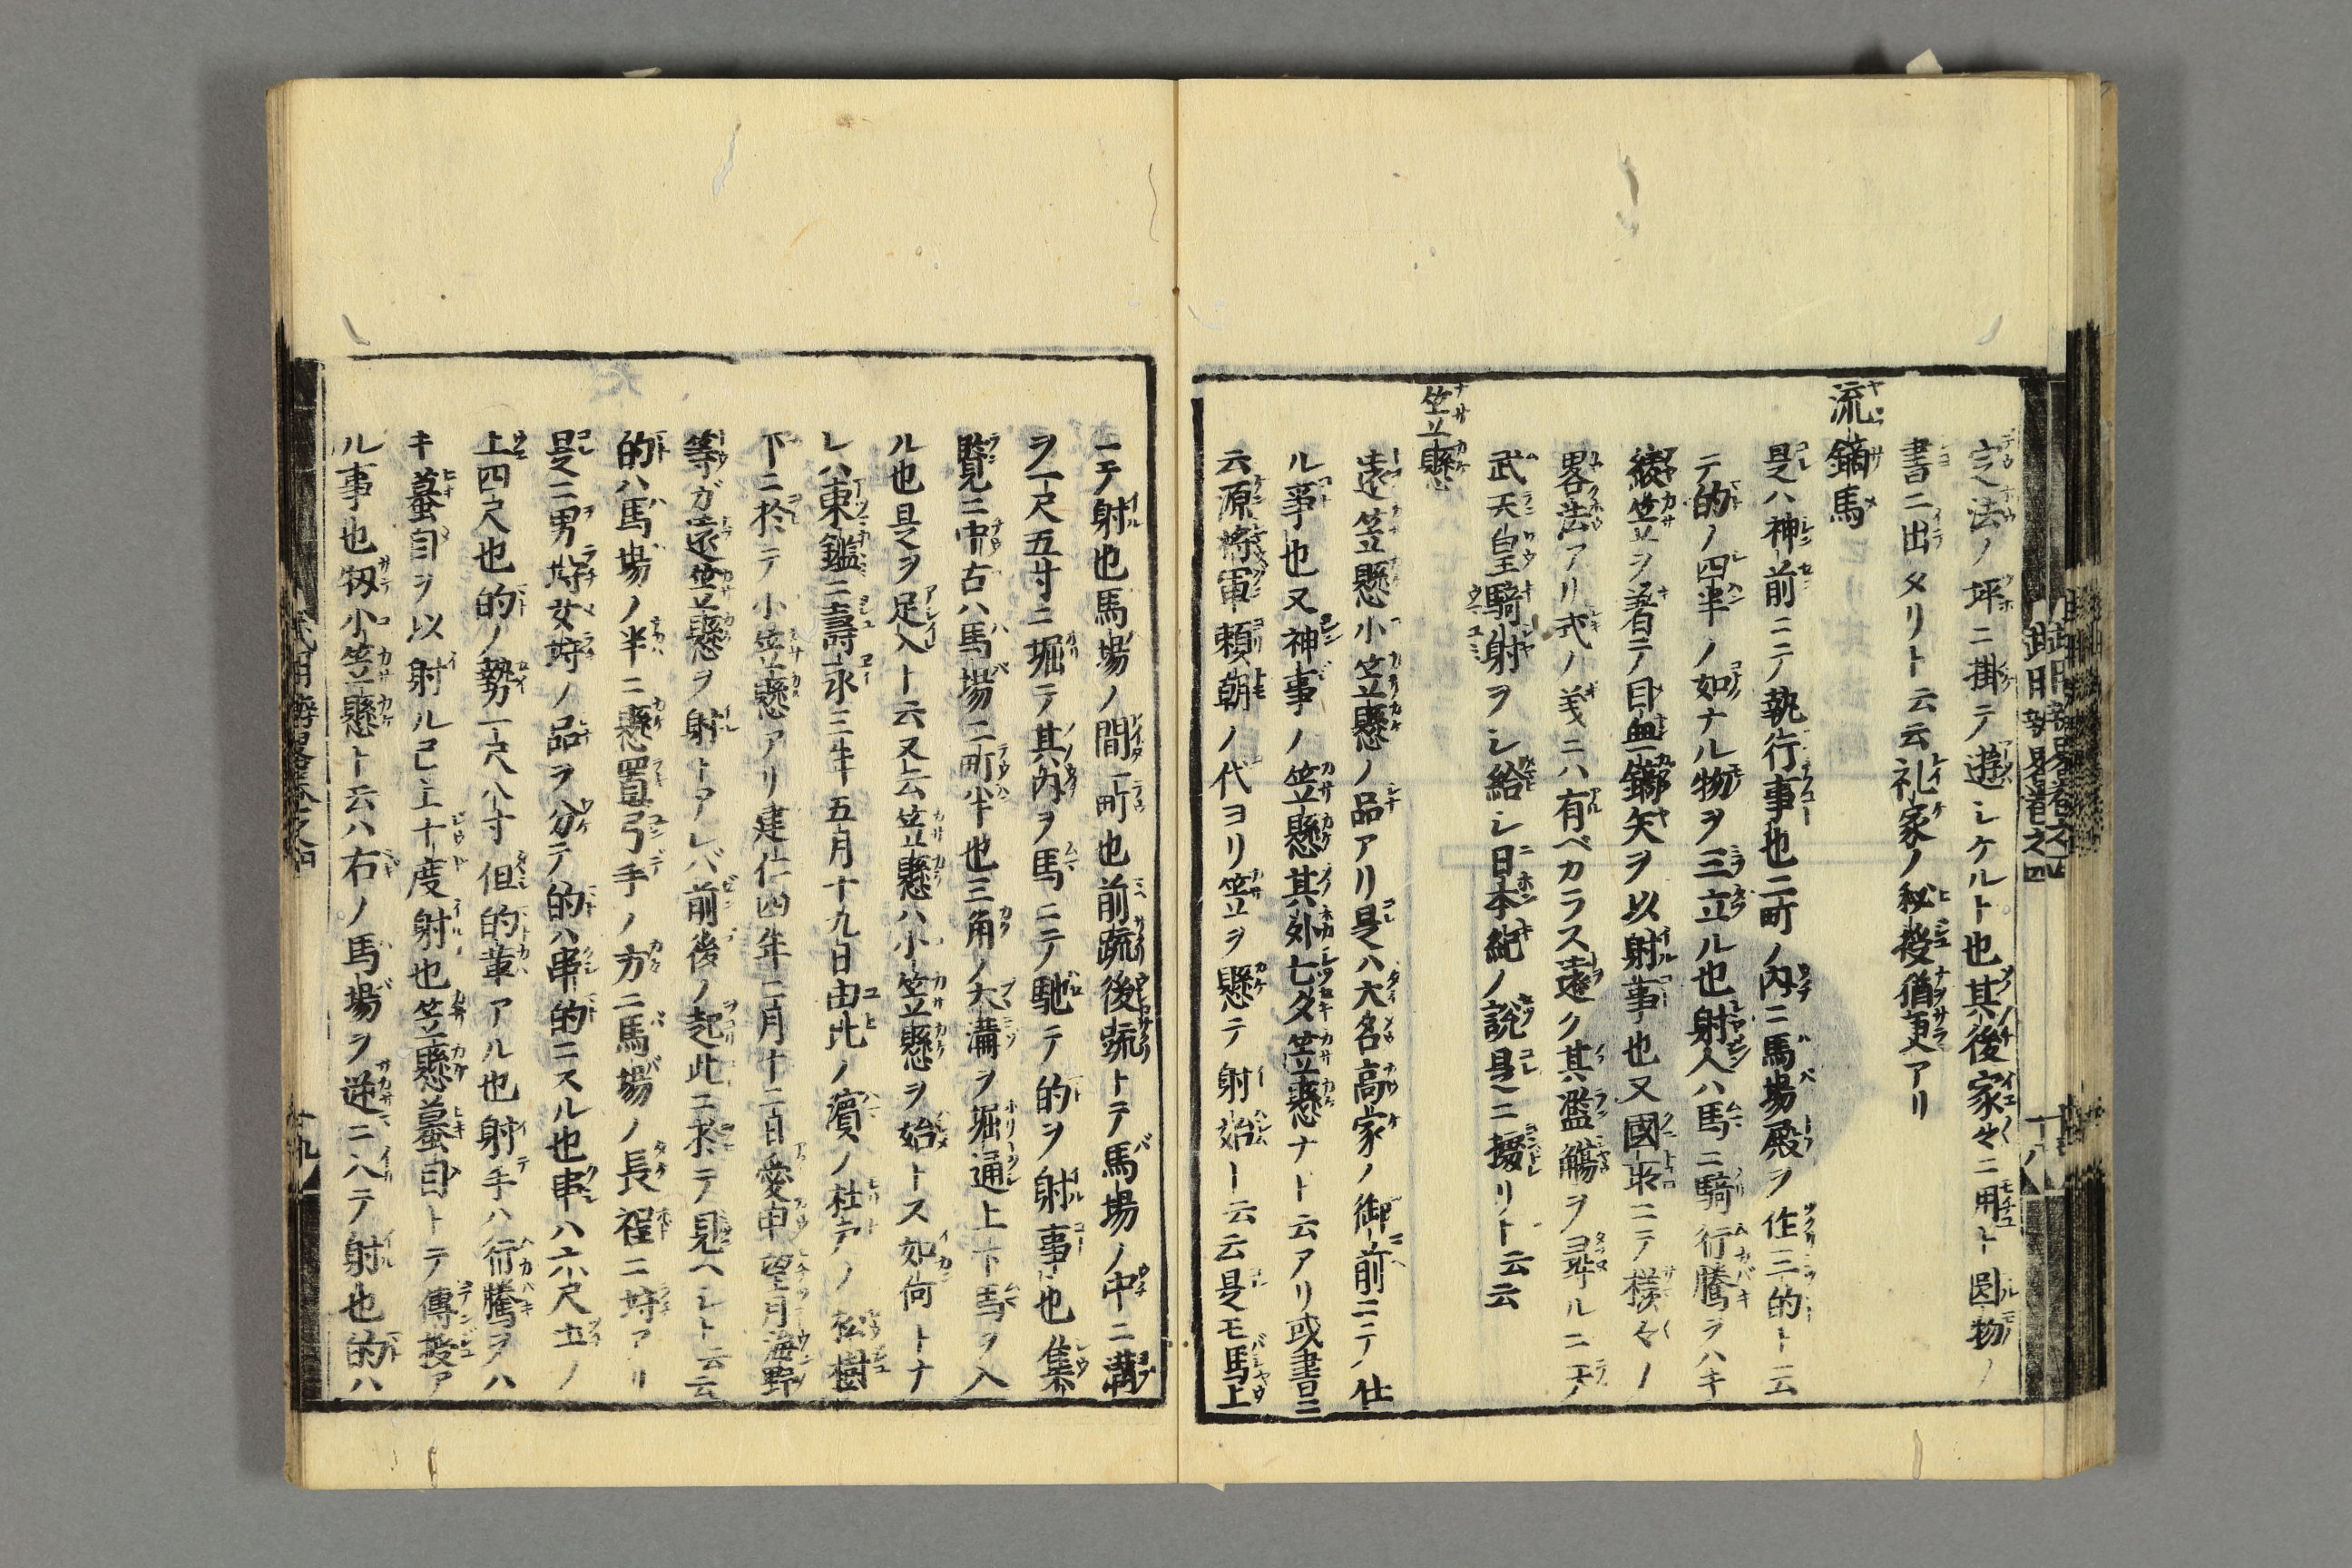 定法ノ坪ニ掛テ遊シケルト也其後家々ニ用ト圓物ノ
書ニ出タリト云云礼家ノ秘授猶更アリ
流鏑馬
是ハ神前ニテ執行事也二町ノ内ニ馬場殿ヲ作三的ト云
テ的ノ四半ノ如ナル物ヲ三立ル也射人ハ馬ニ騎行騰ヲハキ
綾笠ヲ着テ目無鏑矢ヲ以射事也又國取ニテ様々ノ
畧法アリ式ノ義ニハ有ベカラス遠ク其濫觴ヲ尋ルニ天ノ
武天皇騎射ヲシ給シ日本紀ノ說是ニ據リト云云
笠懸
遠笠懸小笠懸ノ品アリ是ハ大名高家ノ御前ニテノ仕
ル事也又神事ノ笠懸其外七夕笠懸ナト云アリ或書曰ニ
云源將軍頼朝ノ代ヨリ笠ヲ懸テ射始ト云云是モ馬上
ニテ射也馬場ノ間一町也前疏後疏トテ馬場ノ中ニ溝
ヲ一尺五寸ニ堀テ其内ヲ馬ニテ馳テ的ヲ射事也集
覽ニ中古ハ馬場二町半也三角ノ大溝ヲ堀通上下馬ヲ入
ル也是ヲ足入ト云又云笠懸ハ小笠懸ヲ始トス如何トナ
レハ東鑑ニ壽永三年五月十九日由比ノ濱ノ杜戸ノ松樹
下ニ於テ小笠懸アリ建仁四年二月十二日愛甲望月海野
等ガ遠笠懸ヲ射トアレバ前後ノ起此ニ求テ見ヘシト云云
的ハ馬場ノ半ニ懸置弓手ノ方ニ馬場ノ長程ニ埒アリ
是ニ男埒女埒ノ品ヲ分テ的ハ串的ニスル也串ハ六尺土ノ
上四尺也的ノ勢一尺八寸但的革アル也射手ハ行騰ヲハ
キ蟇目ヲ以射ル已上十度射也笠懸蟇目トテ傳授ア
ル事也扨小笠懸ト云ハ右ノ馬場ヲ逆ニ入テ射也的ハ
十八
十九